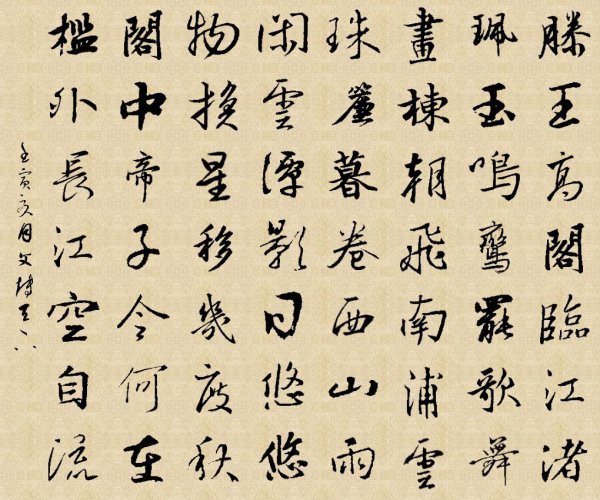 滕王高閣臨江渚
珮玉鳴鸞罷歌舞
畫棟朝飛南浦雲
珠簾暮卷西山雨
閑雲潭影日悠悠
物換星移幾度秋
閣中帝子今何在
檻外長江空自流
壬寅亥月文博